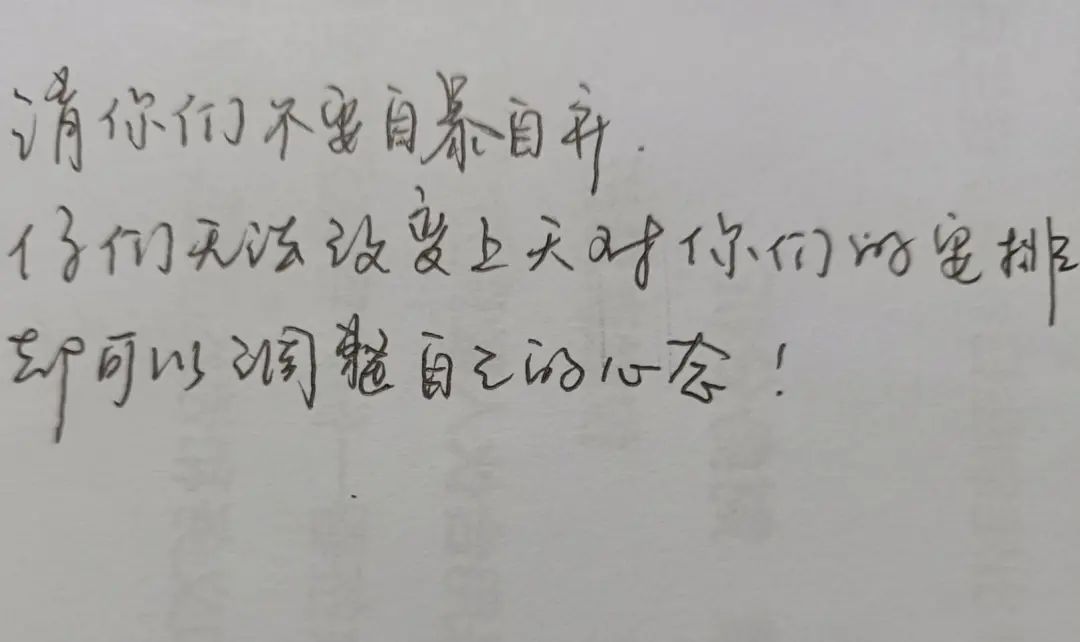 请你们不要自暴自弃.
你们无法改变上天对你们的安排
却可以调整自己的心态!